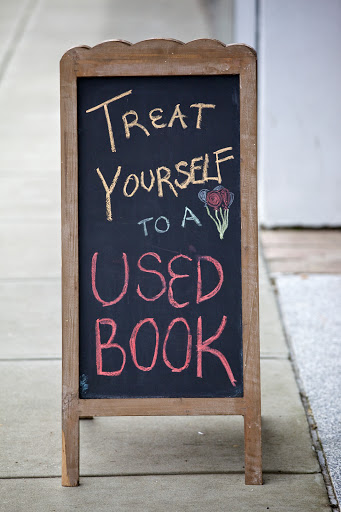 TREAT
YOURSELF
TO A
USED
BOOK